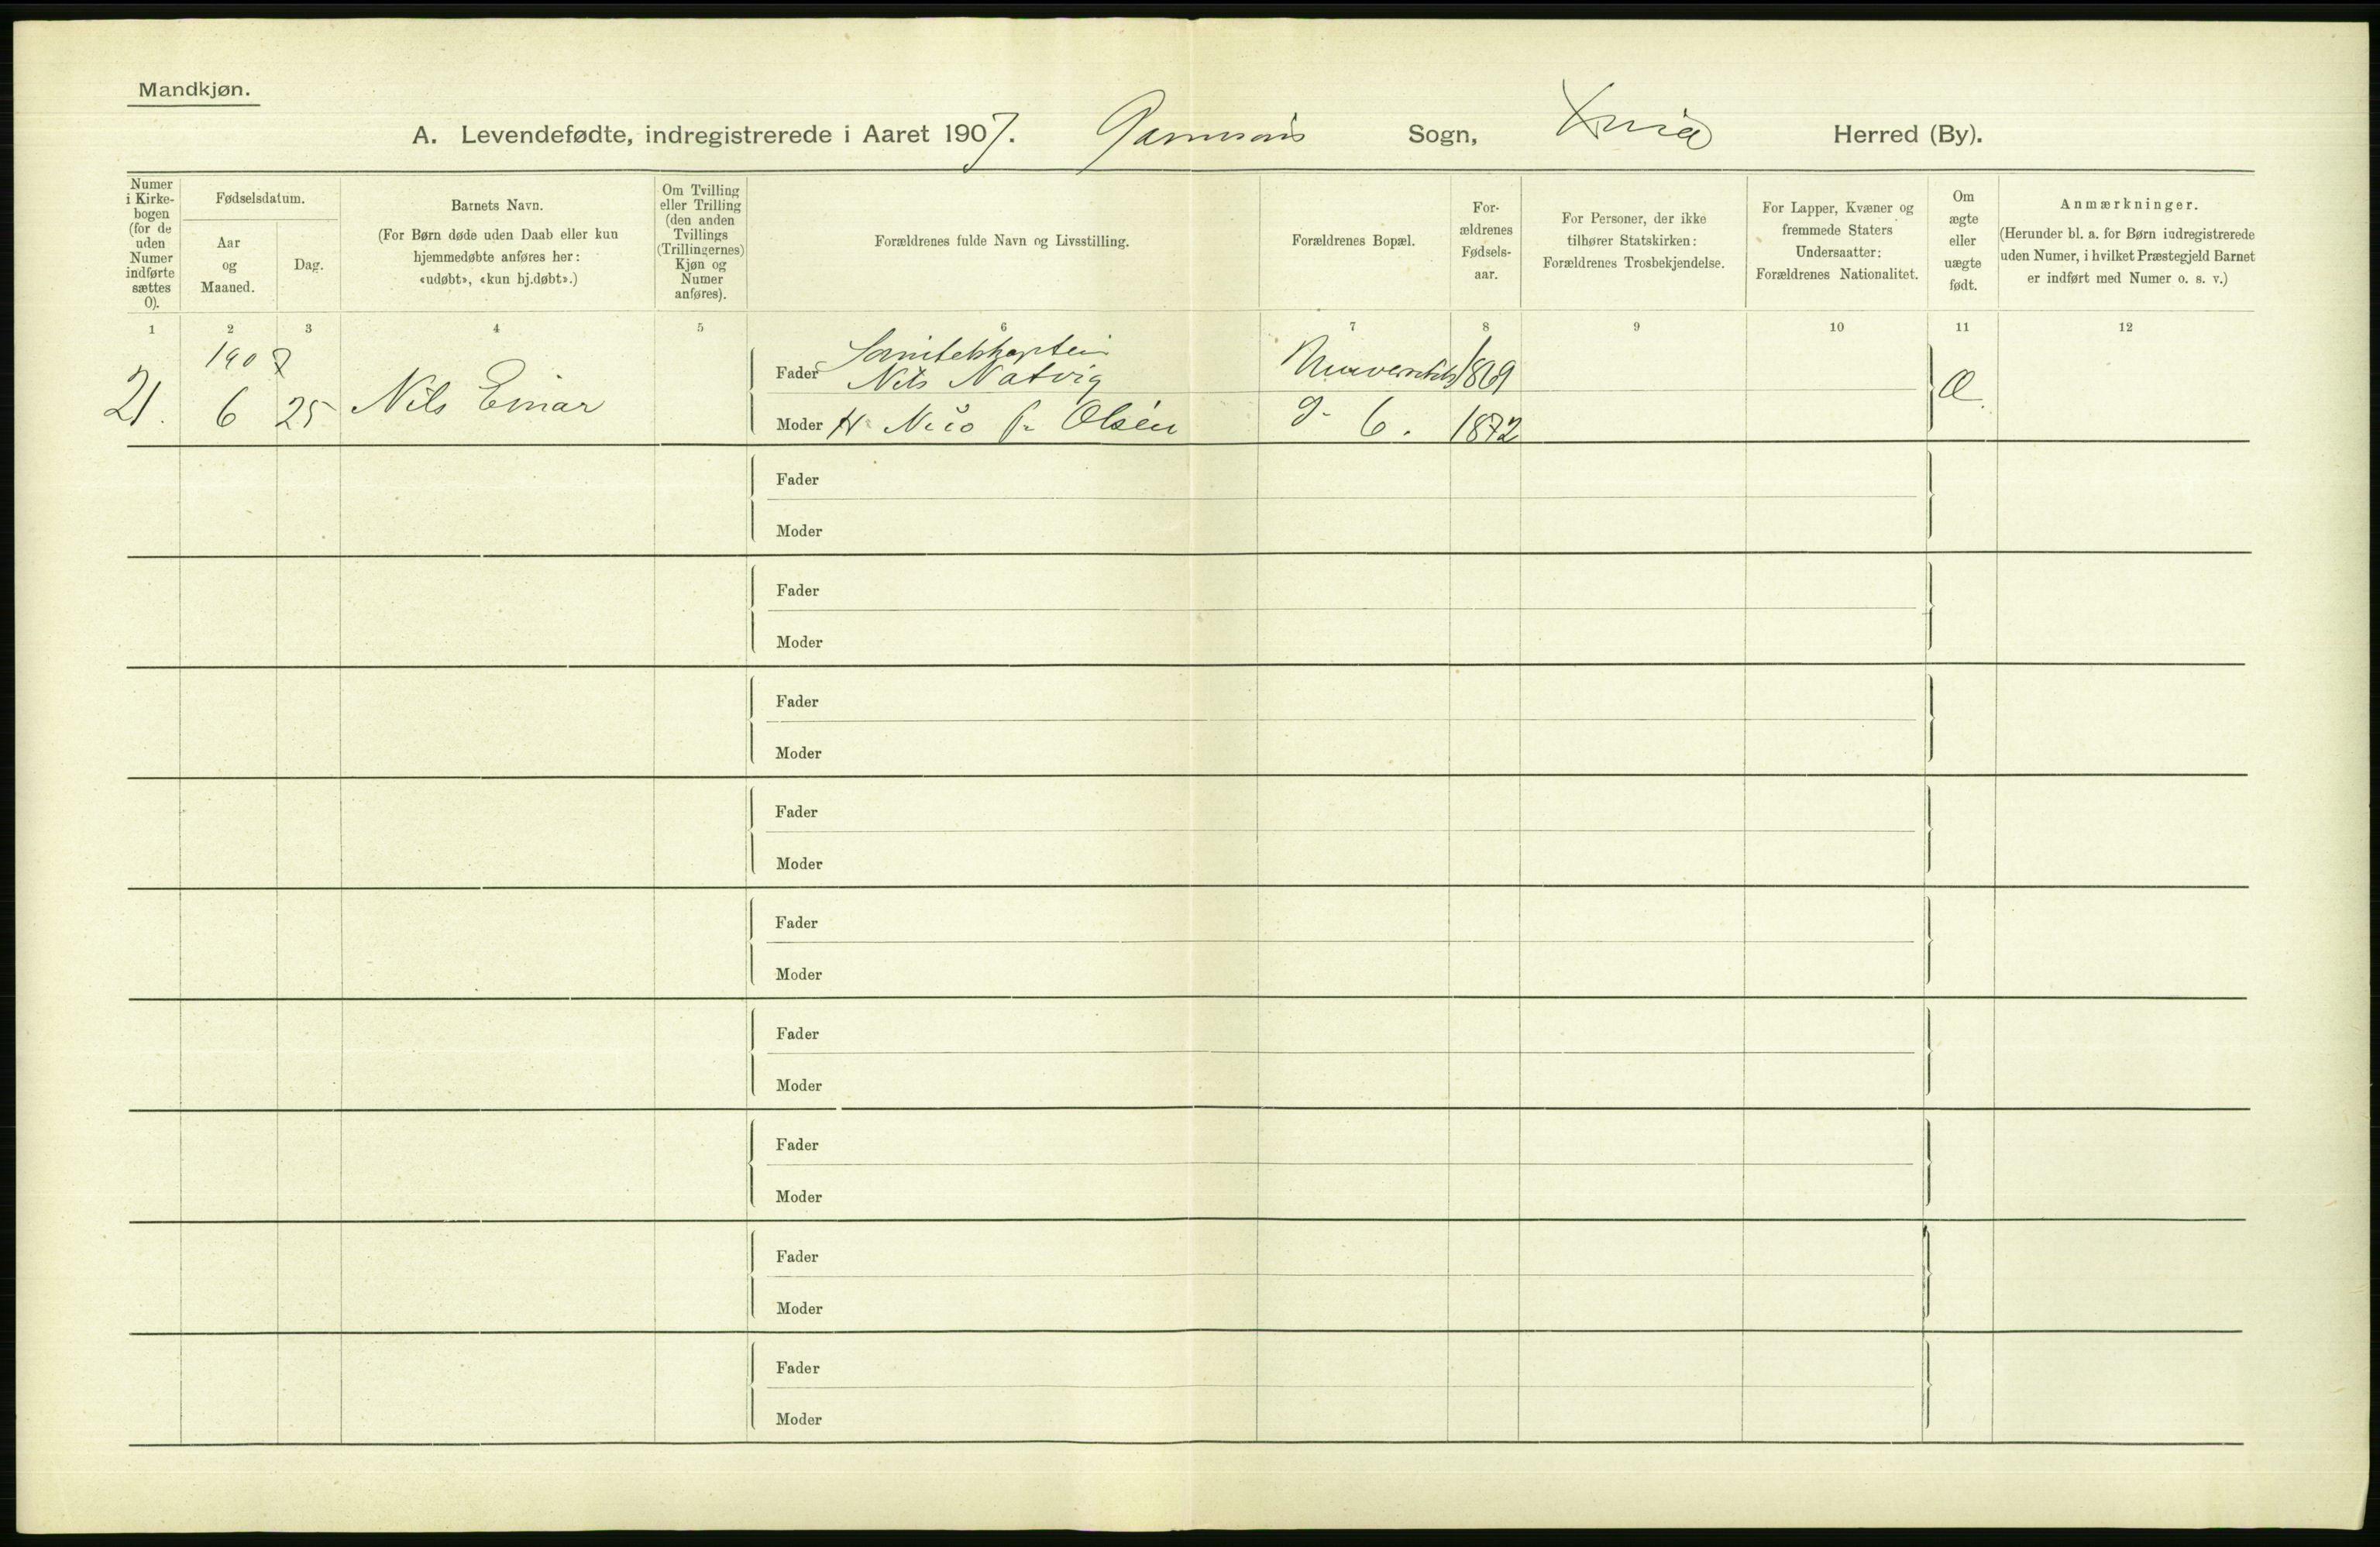 Mandkjøn.
A. Levendefødte, indregistrerede i Aaret 1907. Garnisons Sogn, Xnia Herred (By).
Numer i Kirkebogen (for de uden Numer indførte sættes 0).
Fødselsdatum.
Aar og Maaned.
Dag.
Barnets Navn.
(For Børn døde uden Daab eller kun hjemmedøbte anføres her: «udøbt», «kun hj.døbt».)
Om Tvilling eller Trilling (den anden Tvillings (Trillingernes) Kjøn og Numer anføres).
Forældrenes fulde Navn og Livsstilling.
Forældrenes Bopæl.
Forældrenes Fødselsaar.
For Personer, der ikke tilhører Statskirken: Forældrenes Trosbekjendelse.
For Lapper, Kvæner og fremmede Staters Undersaatter: Forældrenes Nationalitet.
Om ægte eller uægte født.
Anmærkninger.
(Herunder bl. a. for Børn indregistrerede uden Numer, i hvilket Præstegjeld Barnet er indført med Numer o. s. v.)
1 2 3 4 5 6 7 8 9 10 11 12
1907
21. 6 25 Nils Einar
Sanitetskaptein
Fader Nils Natvig 1869 Æ.
Moder Olsen 6. 1872
Fader
Moder
Fader
Moder
Fader
Moder
Fader
Moder
Fader
Moder
Fader
Moder
Fader
Moder
Fader
Moder
Fader
Moder